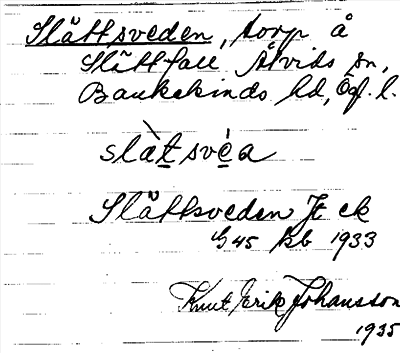 Slättsveden, torp å
Slättfall Åtvids sn,
Bankekinds hd, Ög. l.
slàt̲ své̲a
Slättsveden Jt ek
G 45 kb 1933
Knut Erik Johansson
1935